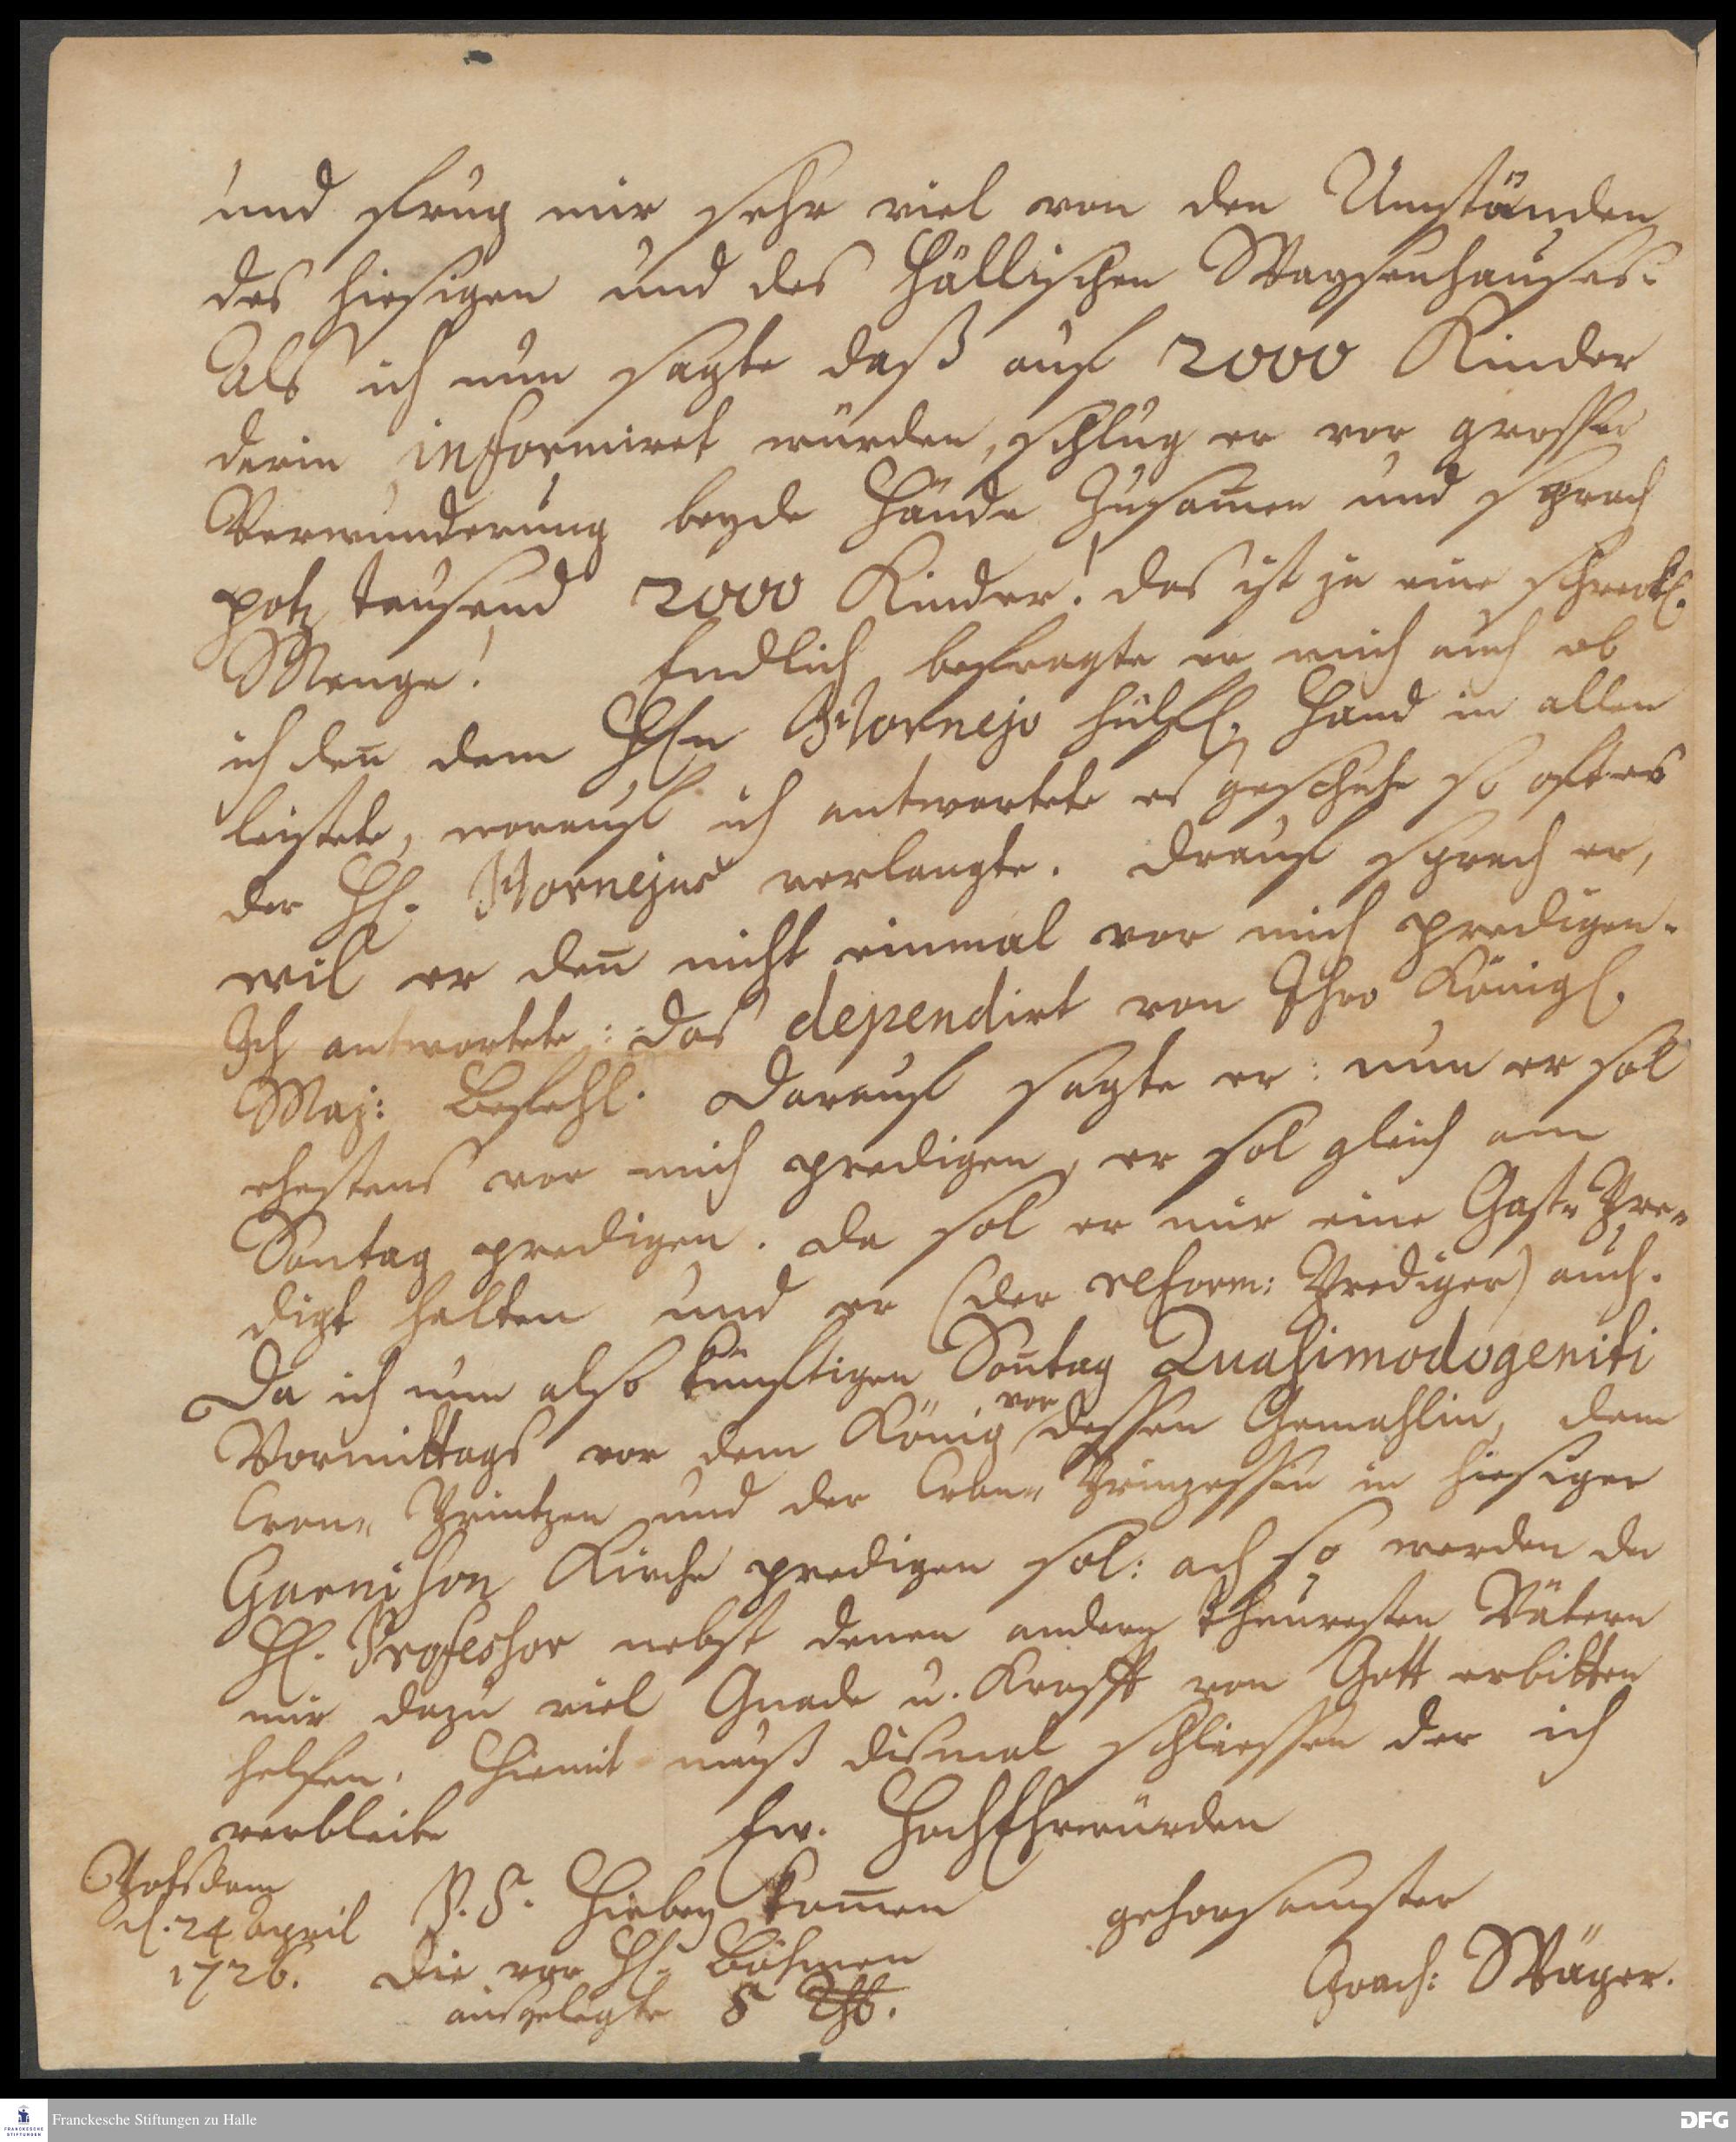 und frug mir sehr viel von den Umständen
des hiesigen und des Hällischen Waysenhauses.
Als ich nun sagte daß auf 2000 Kinder
darin informiret würden, schlug er vor grosser
Verwunderung beyde Hände zusam̅en und sprach
potz tausend 2000 Kinder! das ist ja eine schreckl.
Menge! Endlich befragte er mich auch ob
ich den̅ dem HEn Hornejo hülfl. Hand in allen
leistete, worauf ich antwortete es geschehe so oft es
der H. Hornejus verlangte. Drauf sprach er,
wil er den̅ nicht einmal vor mich predigen.
Ich antwortete: das dependirt von Ihro Königl.
Maj: Befehl. Darauf sagte er: nun er sol
ehestens vor mich predigen, er sol gleich am
Sontag predigen. Da sol er mir eine Gast- Pre-
digt halten und er (der reform: Prediger) auch.
Da ich nun also künftigen Son̅tag Quasimodogeniti
Vormittags vor dem König vor dessen Gemahlin, dem
Cron- Printzen und der Cron- Prinzessin in hiesiger
Garnison Kirche predigen sol: ach so werden der
H. Professor nebst denen andern theuresten Vätern
mir dazu viel Gnade u. Krafft von Gott erbitten
helfen. Hiemit muß dismal schliessen der ich
verbleibe Ew. HochEhrwürden
Potsdam
d. 24 April P. S. Hiebey kom̅en gehorsamster
1726. die vor H. Böhmen Joach: Wäger.
ausgelegte 8 Thl.
Franckesche Stiftungen zu Halle
FRANCKESCHE
STIFTUNGEN
DFG